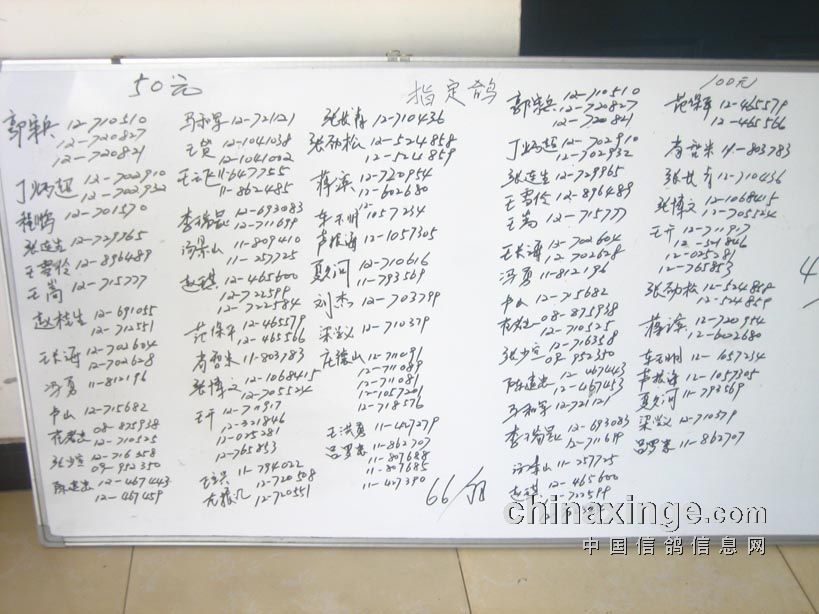 50元
指定鸽
100元
郭宗兵 12-710510
12-720827
12-720821
丁炳超 12-702910
12-702932
程鹏 12-701570
张连生 12-729965
王雪伶 12-896489
王嵩 12-715777
赵桂生 12-691055
12-712551
王长海 12-702604
12-702628
冯勇 11-812196
中山 12-715682
08-875938
12-710525
张少宣 12-716358
09-952350
陈建忠 12-467443
12-467459
马和军 12-721121
王贺 12-1041038
12-1041002
王云飞 11-647755
11-862485
李瑞昆 12-693083
12-711699
汤景山 11-809410
11-257725
赵琪 12-465600
12-722599
12-722584
范保平 12-465579
12-465566
肖哲米 11-803783
张博文 12-1068415
12-705524
王干 12-711917
12-321846
11-025281
12-765853
11-794022
12-720508
12-720551
张世青 12-710436
张劲松 12-524858
12-524859
蒋滨 12-720954
12-602680
车万明 12-1057234
芦振海 12-1057305
夏久河 12-710616
11-793569
刘杰 12-703799
梁义 12-710379
庄德山 12-711091
12-711089
12-711081
12-1057201
12-718576
王洪勇 11-407279
吕男忠 11-862707
11-807688
11-807685
11-407390
66/羽
郭宗兵 12-710510
12-720827
12-720821
丁炳超 12-702910
12-702932
张连生 12-729965
王雪伶 12-896489
王嵩 12-715777
王长海 12-702604
12-702628
冯勇 11-812196
中山 12-715682
08-875938
12-710525
张少宣 12-716358
09-952350
陈建忠 12-467443
12-467453
马和军 12-721121
李瑞昆 12-693083
12-711699
汤景山 11-257725
赵琪 12-465600
12-722599
范保平 12-465579
12-465566
肖哲米 11-803783
张世青 12-710436
张博文 12-1068415
12-705524
王干 12-711917
12-025281
12-765853
张劲松 12-524858
12-524859
蒋滨 12-720954
12-602680
车万明 12-1057234
芦振海 12-1057305
夏久河 11-793569
梁义 12-710379
吕男忠 11-862707
4
chinaxinge.com
中国信鸽信息网